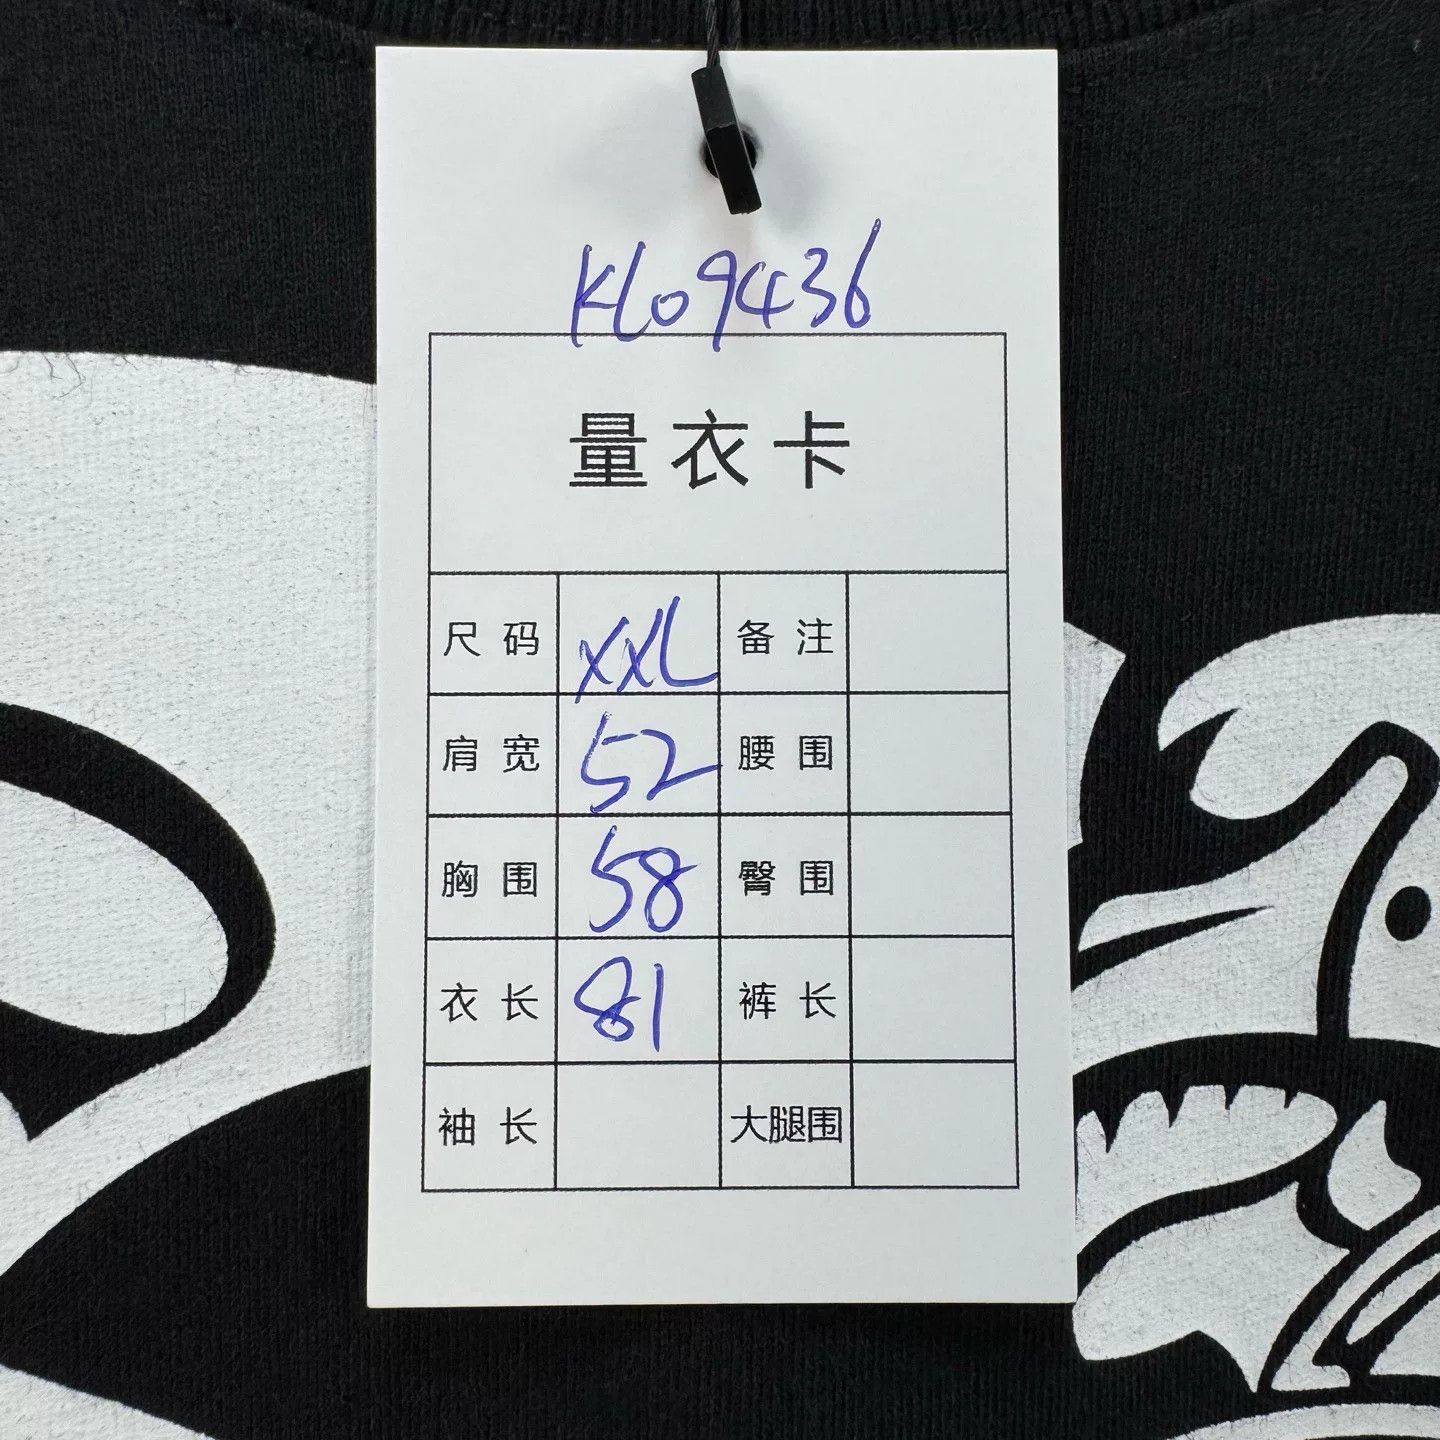 KL09436
量衣卡
尺码 XXL 备注
肩宽 52 腰围
胸围 58 臀围
衣长 81 裤长
袖长 大腿围